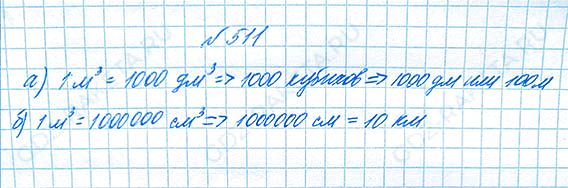 № 511
а) 1 м³ = 1000 дм³ => 1000 кубиков => 1000 дм или 100 м
б) 1 м³ = 1000000 см³ => 1000000 см = 10 км